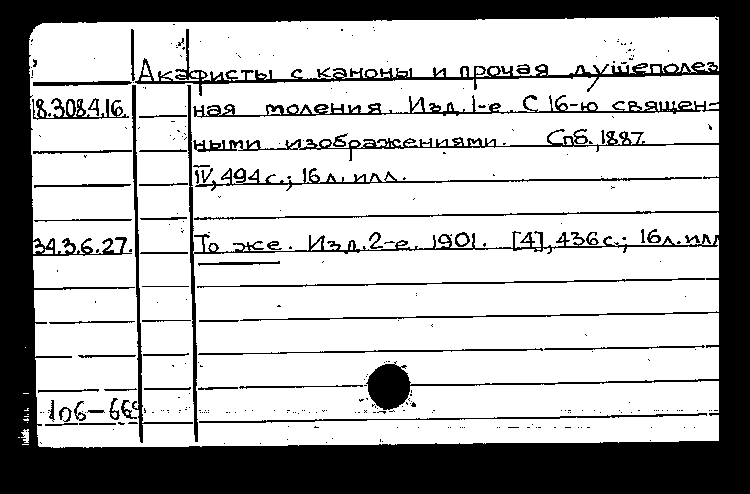 Акафисты с каноны и прочая душеполез
18.308.4.16. ная моления. Изд. 1-е. С 16-ю священ-
ными изображениями. Спб., 1887.
IV, 494 с.; 16 л. илл.
34.3.6.27. То же. Изд. 2-е. 1901. [4], 436 с.; 16 л. илл
106-669